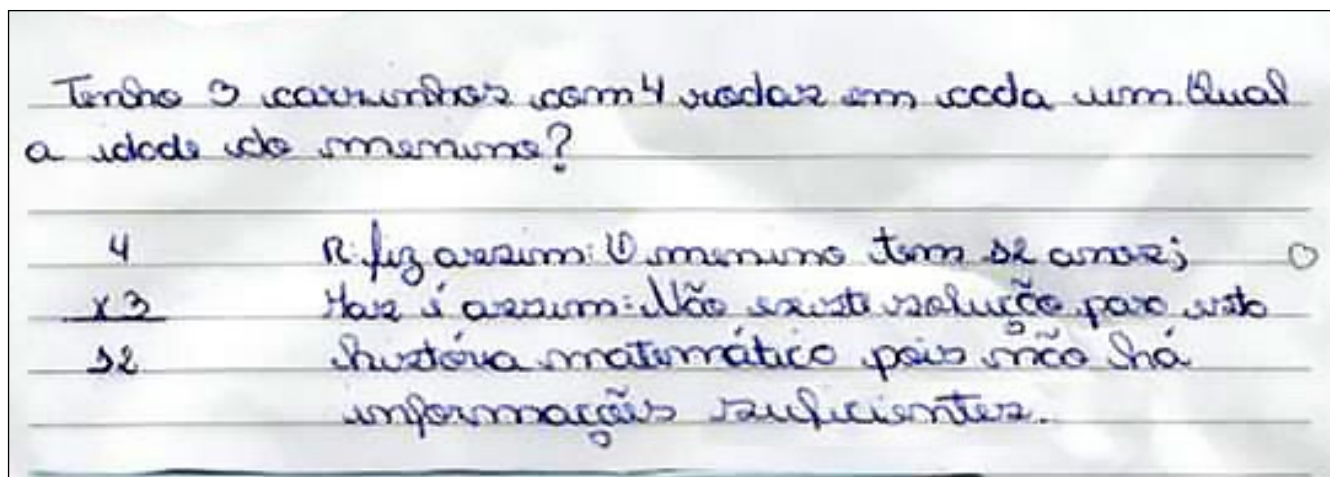 Tenho 3 carrinhos com 4 rodas em cada um. Qual
a idade do menino?
4 R: fiz assim: O menino tem 12 anos;
x 3 Mas é assim: Não existe solução para esta
12 história matemática pois não há
informações suficientes.